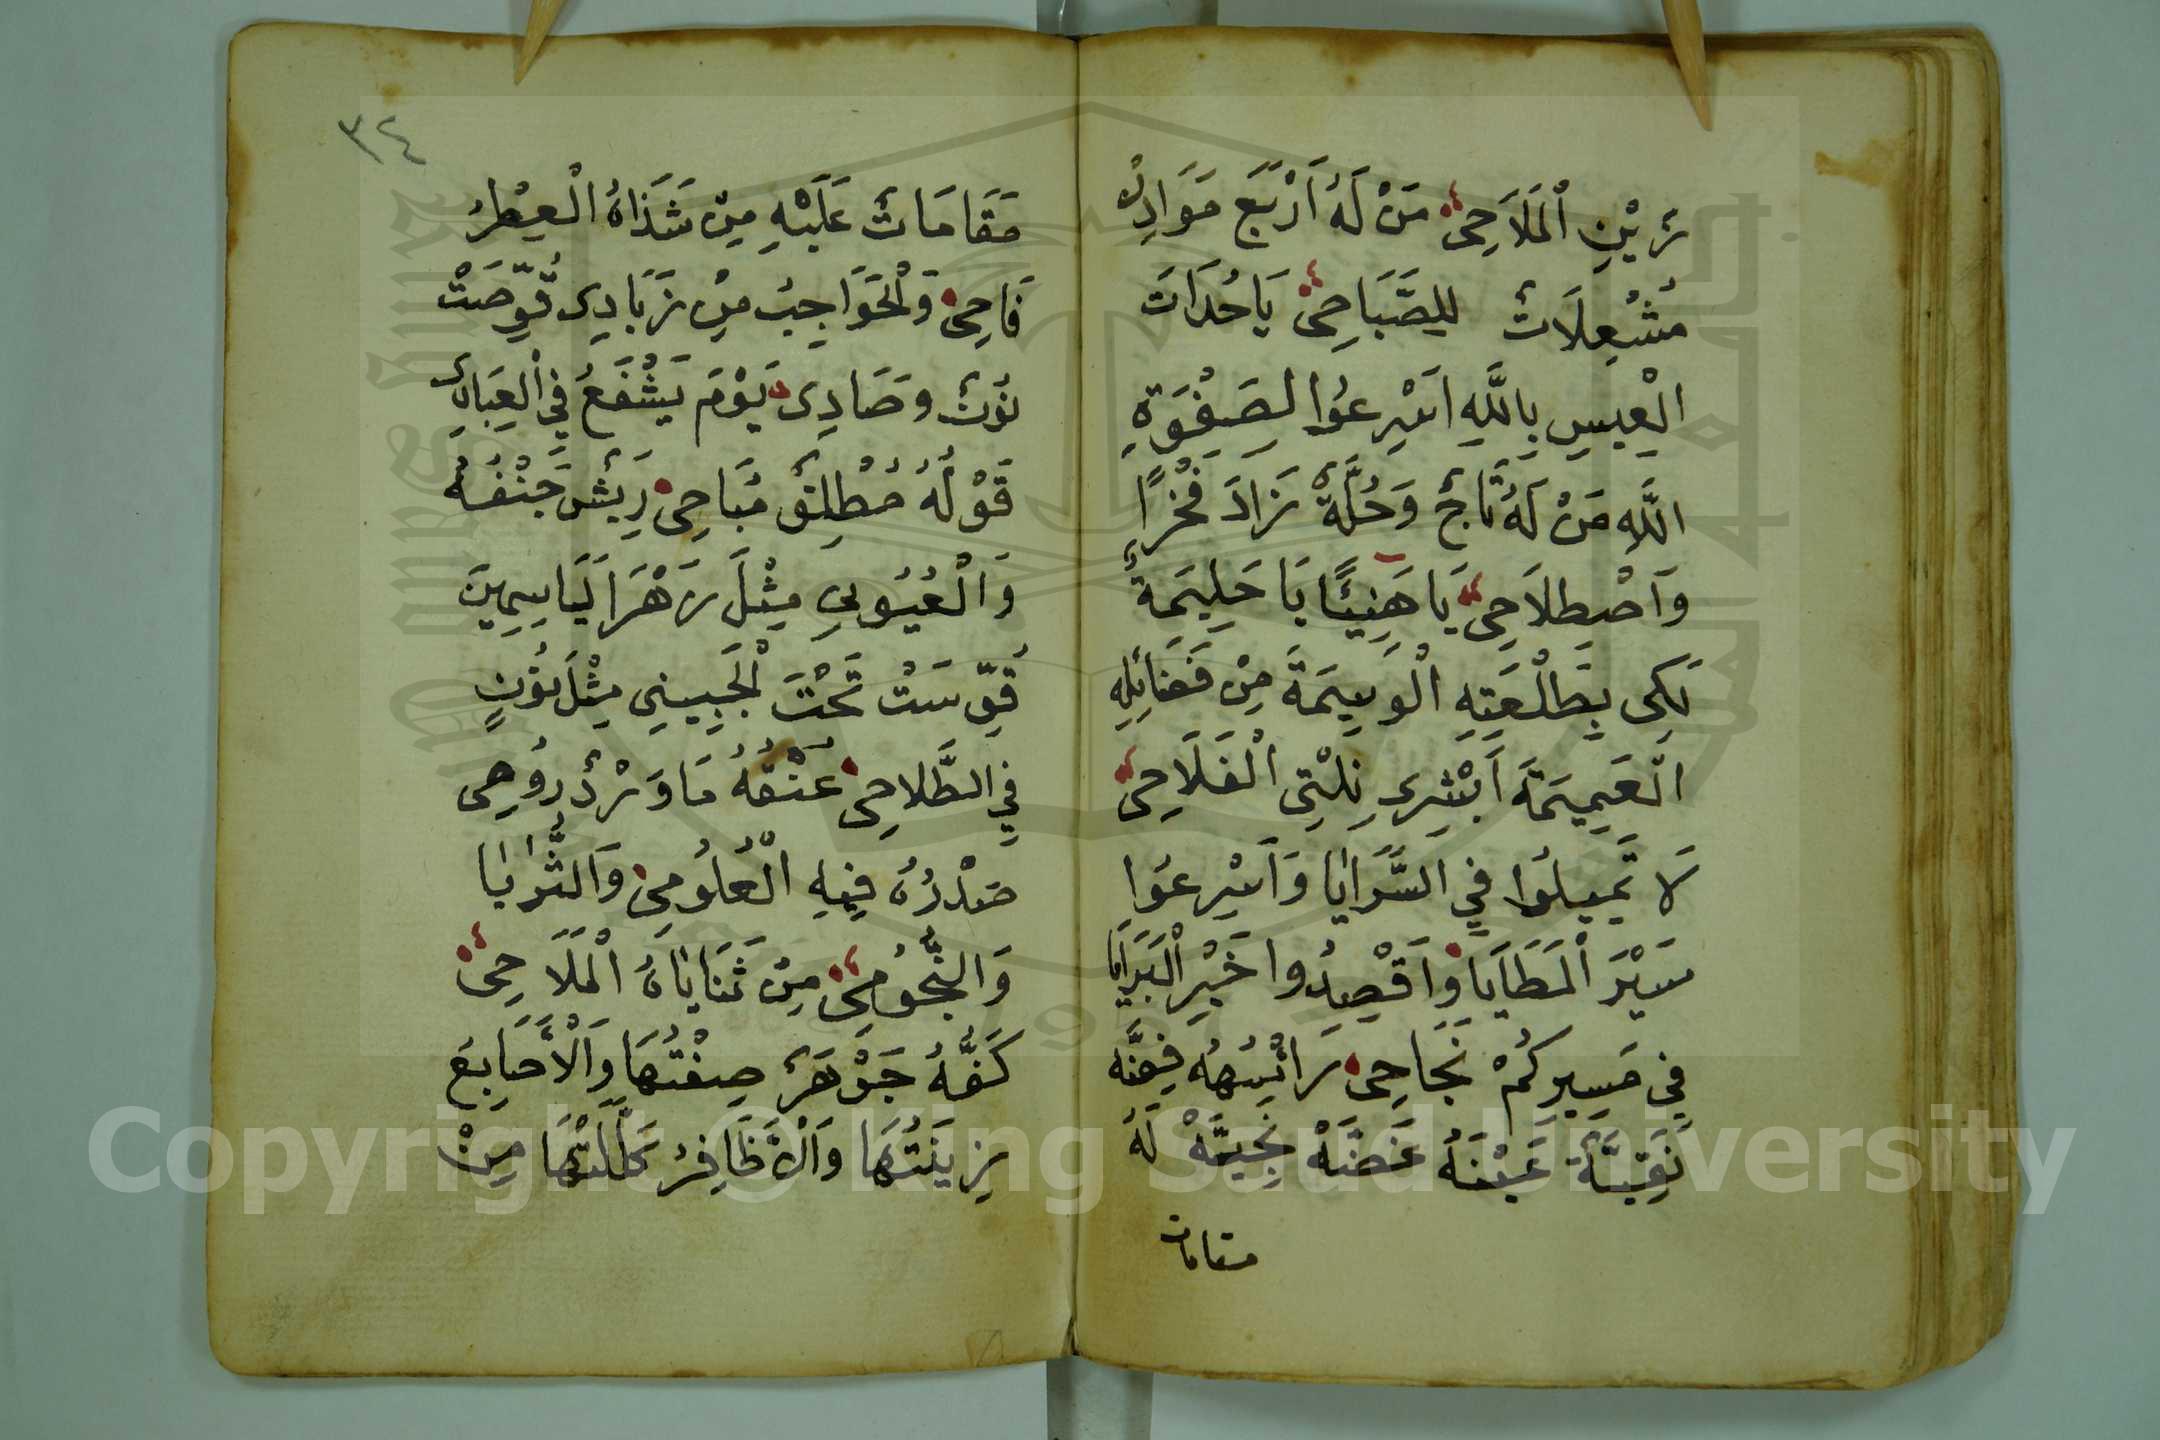 زَيْنِ الْمَلَاحِىْ مَنْ لَهُ اَرْبَع مَوَارِدْ
مُشْعِلَاتْ لِلصَّبَاحِىْ يَا حُدَاتَ
الْعِيسِ بِاللَّهِ اَسْرِعُوا لِصِفْوَةِ
اللَّهِ مَنْ لَهُ تَاجٌ وَحُلَّةٌ زَادَ فَخْرًا
وَاَصْطِلَاحِىْ يَا هَنِيئًا يَا حَلِيمَةُ
لَكِى بِطَلْعَتِهِ الْوَسِيمَةَ مِنْ فَضَائِلِهِ
الْعَمِيمَةَ اَبْشِرِى نِلْتِى الْفَلَاحِىْ
لَا تَمِيلُوا فِي السَّرَايَا وَاَسْرِعُوا
سَيْرَ الْمَطَايَا وَاَقْصِدُوا خَيْرِ الْبَرَايَا
فِي مَسِيرِكُمْ نَجَاحِىْ رَائْسُهُ فِضَّه
نَقِيَّةْ عَيْنَهُ غَضَّهْ نَجِيَّهْ لَهُ
مقامات
٣٤
مَقَامَاتْ عَلَيْهِ مِنْ شَذَاهُ الْعِطْرُ
فَاحِىْ وَلْحَوَاجِبُ مِنْ زَبَادِى قُوِّصَتْ
نُونْ وصَادِى يَوْمَ يَشْفَعُ فِي الْعِبَادِى
قَوْلُهُ مُطْلِقْ مُبَاحِىْ رِيْشَ جَنْفُهُ
وَالْعُيُونِ مِثْلَ زَهْرَا لْيَاسِمِينَ
قُوِّسَتْ تَحْتَ الْجَبِينِي مِثْلَ نُونٍ
فِي الطَّلَاحِىْ عُنْقُهُ مَا وَرْدْ رُوحِى
صَدْرُهُ فِيْهِ الْعُلُومِىْ وَالثُّرَايَا
وَالنُّجُومِىْ مِنْ ثَنَايَاهُ الْمَلَاحِىْ
كَفُّهُ جَوْهَرْ صِفْتُهَا وَالْأَصَابِعَ
زِينَتُهَا وَالْاَظَافِرُ كَلَّلَتْهَا مِنْ
Copyright © King Saud University
1957